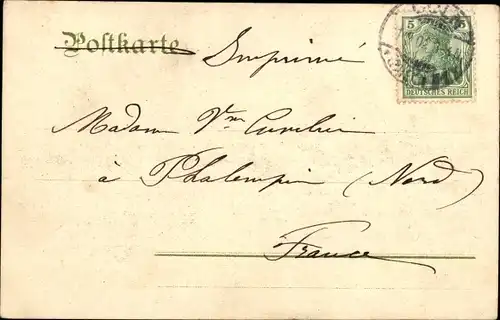 Postkarte Imprimé
5
DEUTSCHES REICH
Madame Vve Cuvelier
à Phalempin (Nord)
France